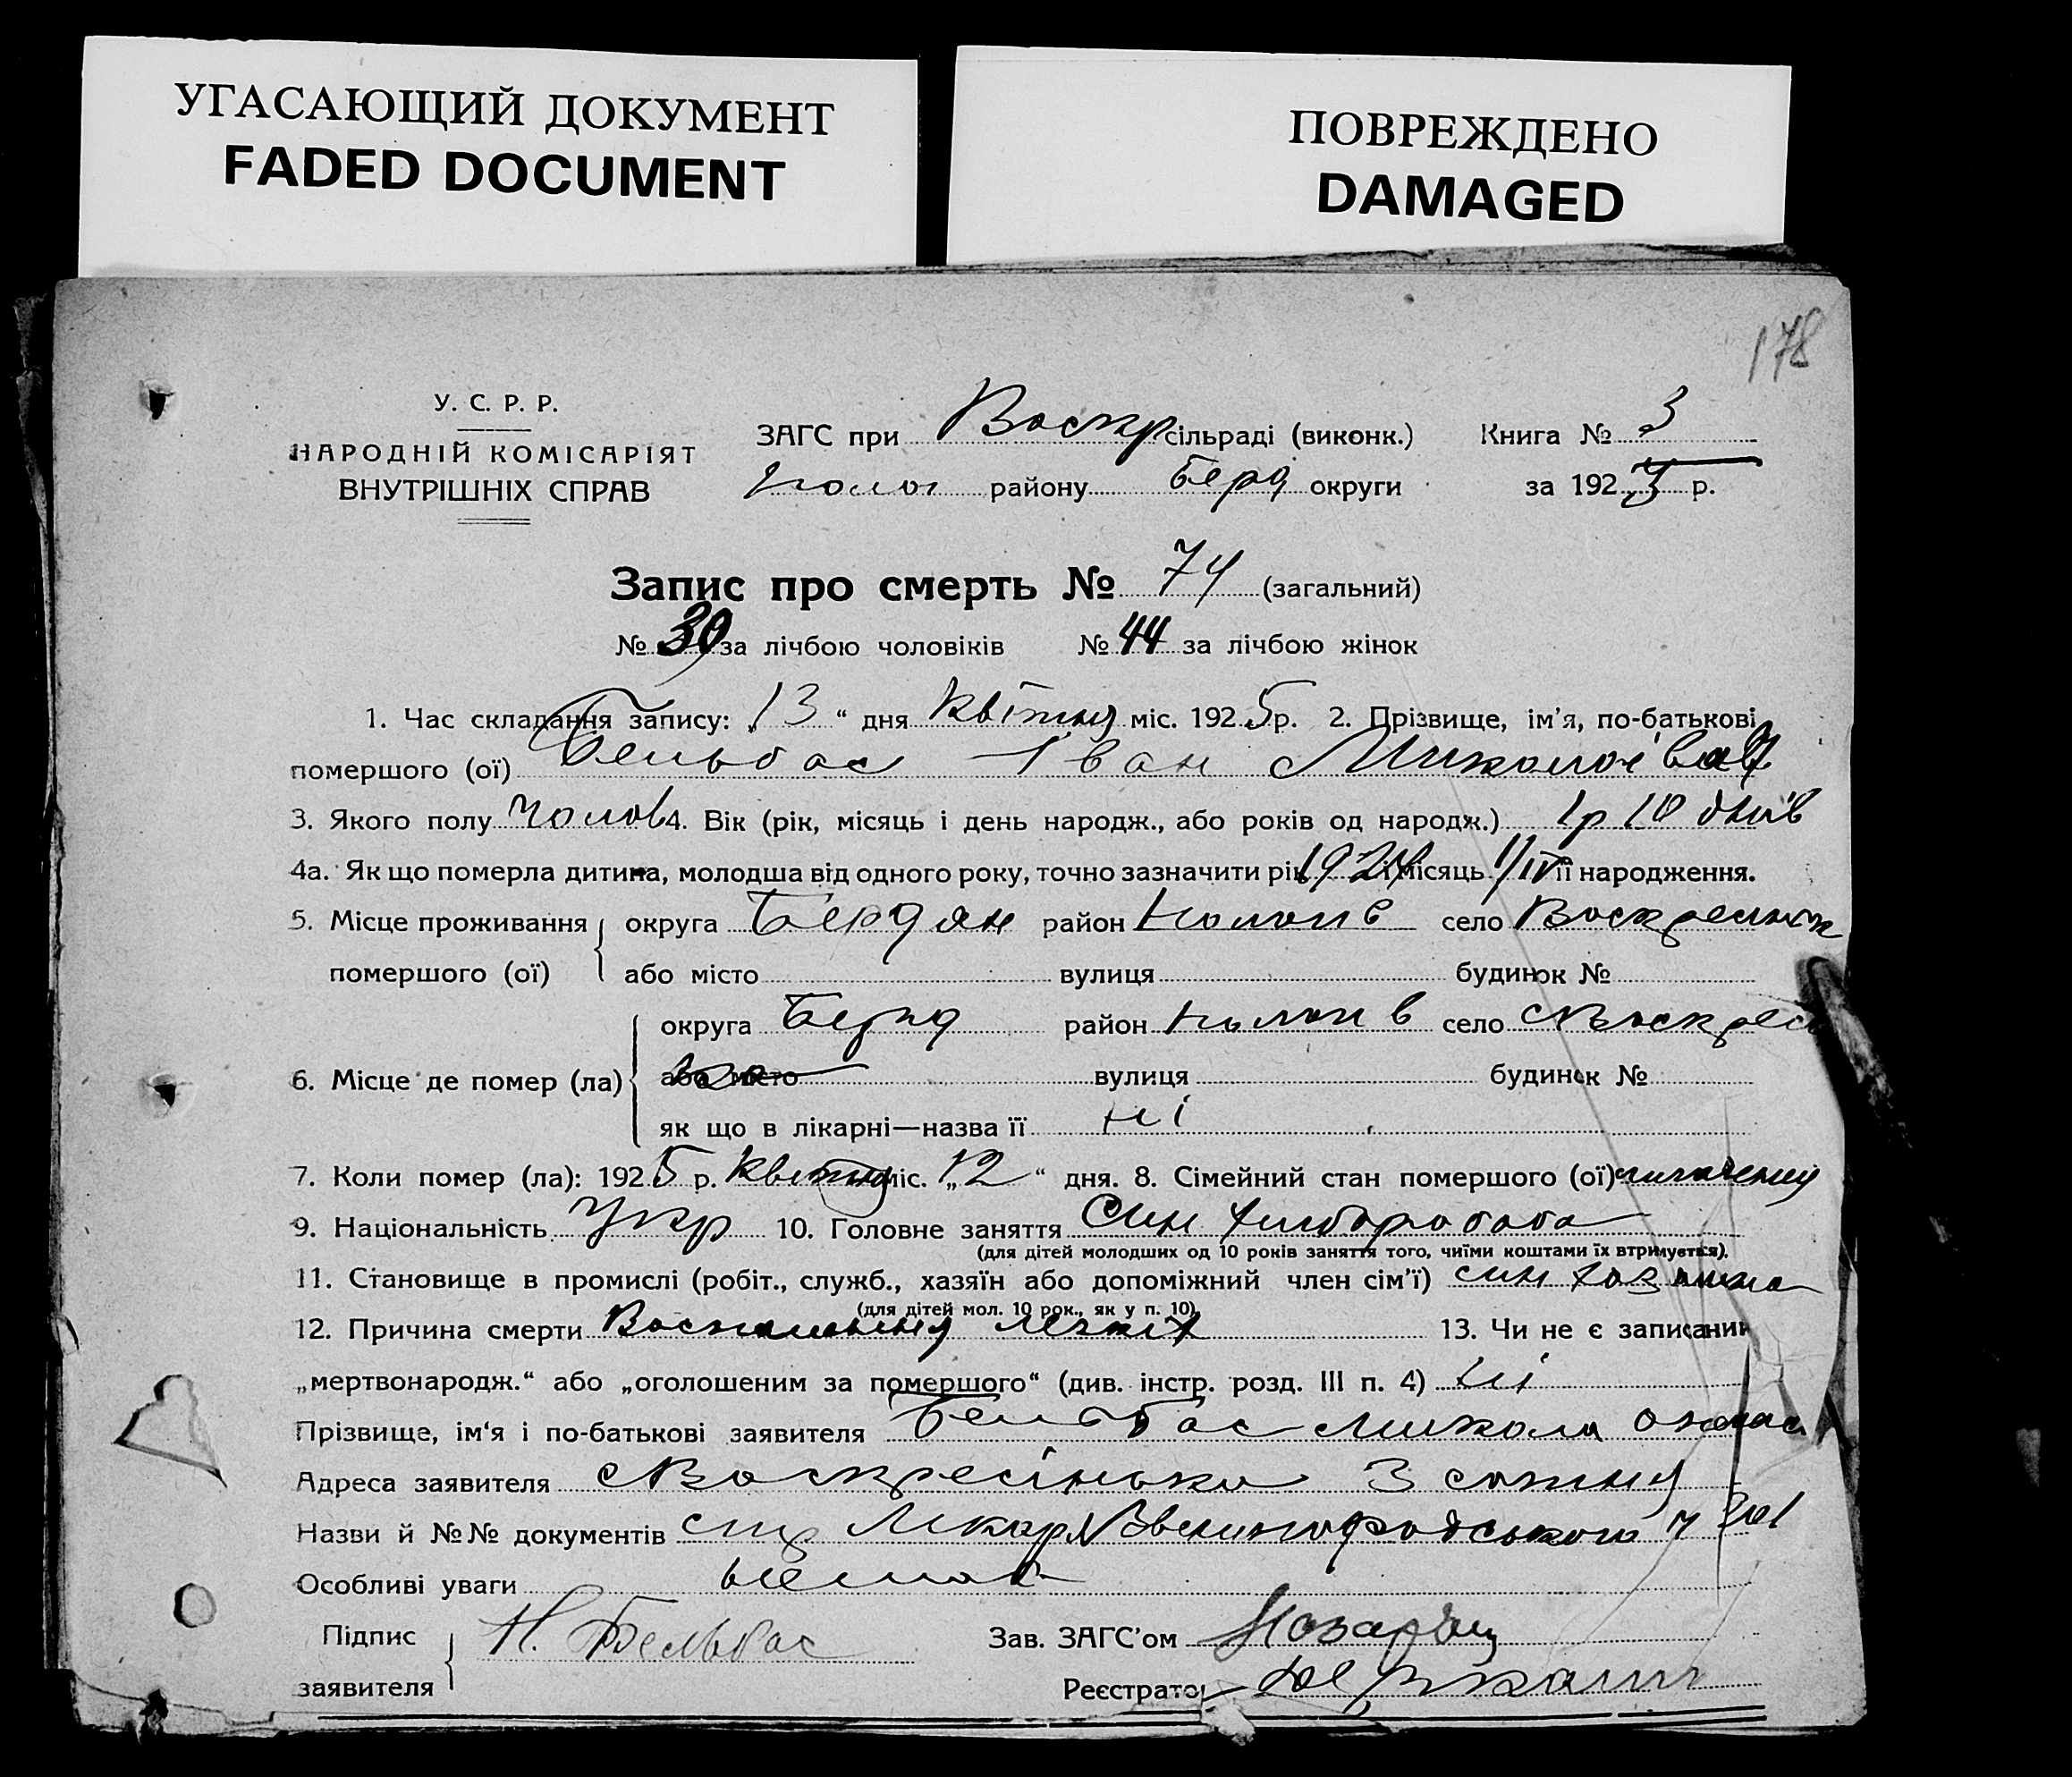 УГАСАЮЩИЙ ДОКУМЕНТ
FADED DOCUMENT
ПОВРЕЖДЕНО
DAMAGED
178
У. С. Р. Р.
НАРОДНІЙ КОМІСАРІЯТ
ВНУТРІШНІХ СПРАВ
ЗАГС при Воскр сільраді (виконк.) Книга № 3
району Берд округи за 192 р.
Запис про смерть № 74 (загальний)
№ 30 за лічбою чоловіків № 44 за лічбою жінок
1. Час складання запису: „13“ дня квітня міс. 1925 р. 2. Прізвище, ім'я, по-батькові
помершого (ої) Бельбас Іван Миколаєвич
3. Якого полу чолов 4. Вік (рік, місяць і день народж., або років од народж.) 1 р 10 днів
4а. Як що померла дитина, молодша від одного року, точно зазначити рік 1924 місяць 1/IV її народження.
5. Місце проживання округа Бердян район село
помершого (ої) або місто вулиця будинок №
округа Берд район село
6. Місце де помер (ла) або місто вулиця будинок №
як що в лікарні—назва її ні
7. Коли помер (ла): 1925 р. квітня міс. „12“ дня. 8. Сімейний стан помершого (ої)
9. Національність Укр 10. Головне заняття Син хлібороба
(для дітей молодших од 10 років заняття того, чиїми коштами їх втримується).
11. Становище в промислі (робіт., служб., хазяїн або допоміжний член сім'ї) син хазяина
(для дітей мол. 10 рок., як у п. 10)
12. Причина смерти 13. Чи не є записаний
„мертвонародж.“ або „оголошеним за помершого“ (див. інстр. розд. III п. 4) ні
Прізвище, ім'я і по-батькові заявителя Бельбас Микола
Адреса заявителя с Воскресінька 3 сотня
Назви й №№ документів Лікар
Особливі уваги немає
Підпис Н. Бельбас Зав. ЗАГС'ом
заявителя Реєстратор